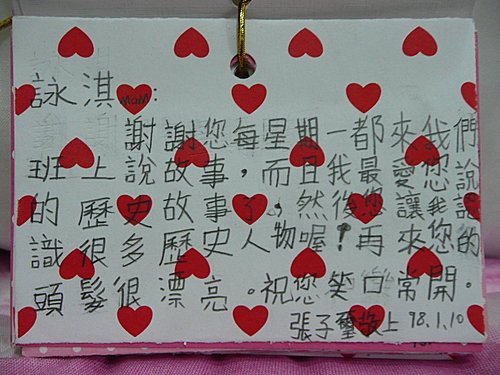 詠淇mam:
謝謝您每星期一都來我們
班上說故事，而且我最愛您說
的歷史故事了，然後您讓我認
識很多歷史人物喔！再來您的
頭髮很漂亮。祝您笑口常開。
張子璽敬上 98.1.10